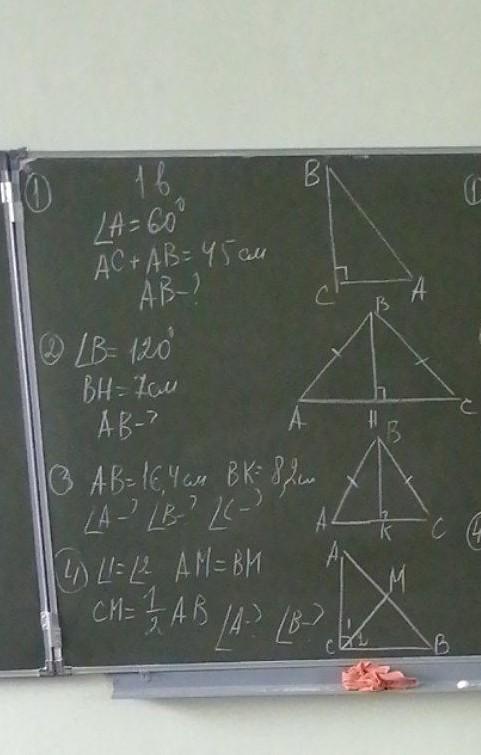 1 в
① ∠A = 60°
AC + AB = 45 см
AB - ?
B
C
A
② ∠B = 120°
BH = 7 см
AB - ?
B
A
H
C
③ AB = 16,4 см BK = 8,2 см
∠A - ? ∠B - ? ∠C - ?
B
A
K
C
④ ∠1 = ∠2 AM = BM
CM = 1/2 AB ∠A - ? ∠B - ?
A
M
1
2
C
B